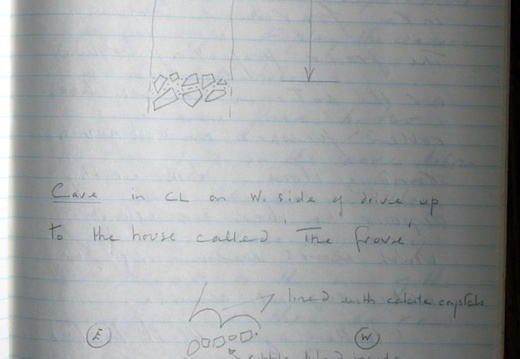 Cave in CL on W. side of drive up
to the house called 'The Grove'
lined with calcite crystals
E
W